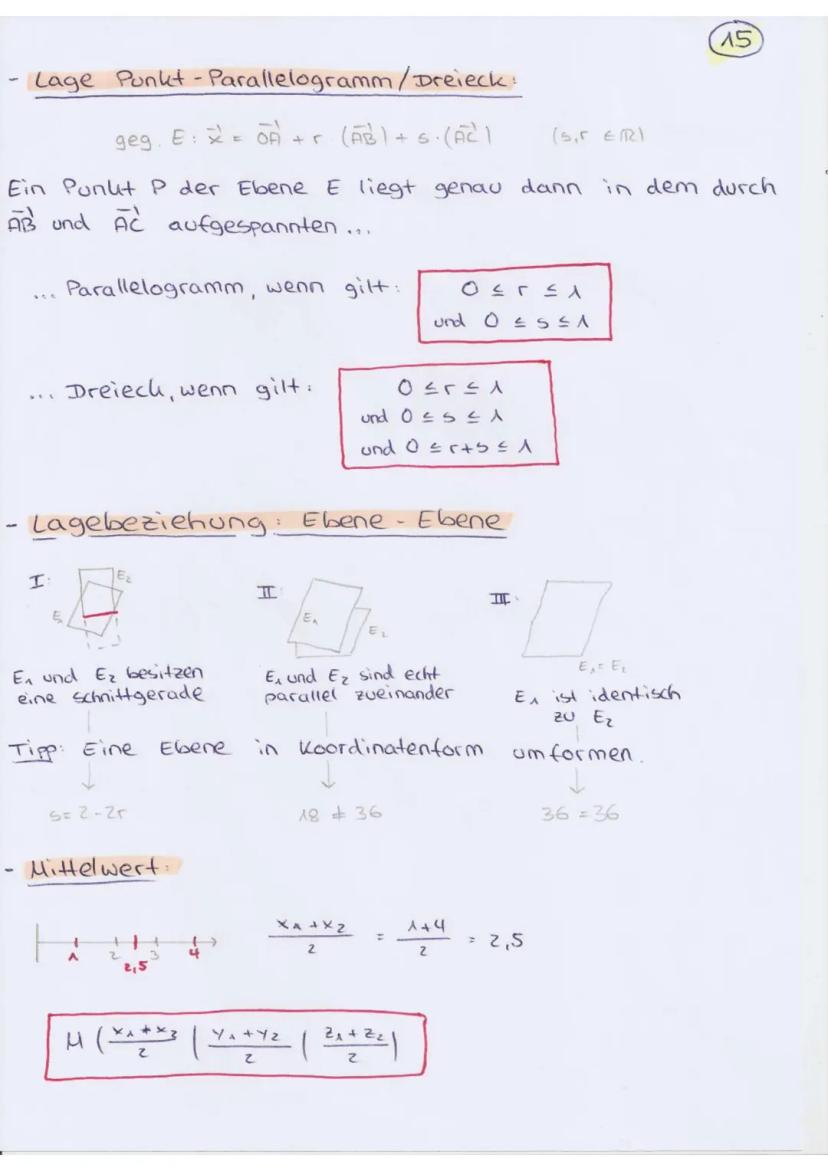 15
- Lage Punkt-Parallelogramm/Dreieck:
geg. E: x⃗ = OA⃗ + r · (AB⃗) + s · (AC⃗) (s,r ∈ ℝ)
Ein Punkt P der Ebene E liegt genau dann in dem durch
AB⃗ und AC⃗ aufgespannten ...
... Parallelogramm, wenn gilt: 0 ≤ r ≤ 1
und 0 ≤ s ≤ 1
... Dreieck, wenn gilt: 0 ≤ r ≤ 1
und 0 ≤ s ≤ 1
und 0 ≤ r+s ≤ 1
- Lagebeziehung: Ebene - Ebene
I: E₂ II: III:
E₁ E₁ E₂ E₁ = E₂
E₁ und E₂ besitzen E₁ und E₂ sind echt E₁ ist identisch
eine Schnittgerade parallel zueinander zu E₂
Tipp: Eine Ebene in Koordinatenform umformen.
s = 2 - 2r 18 ≠ 36 36 = 36
- Mittelwert:
1 2 2,5 3 4 (x₁ + x₂)/2 = (1+4)/2 = 2,5
M ((x₁ + x₂)/2 | (y₁ + y₂)/2 | (z₁ + z₂)/2)